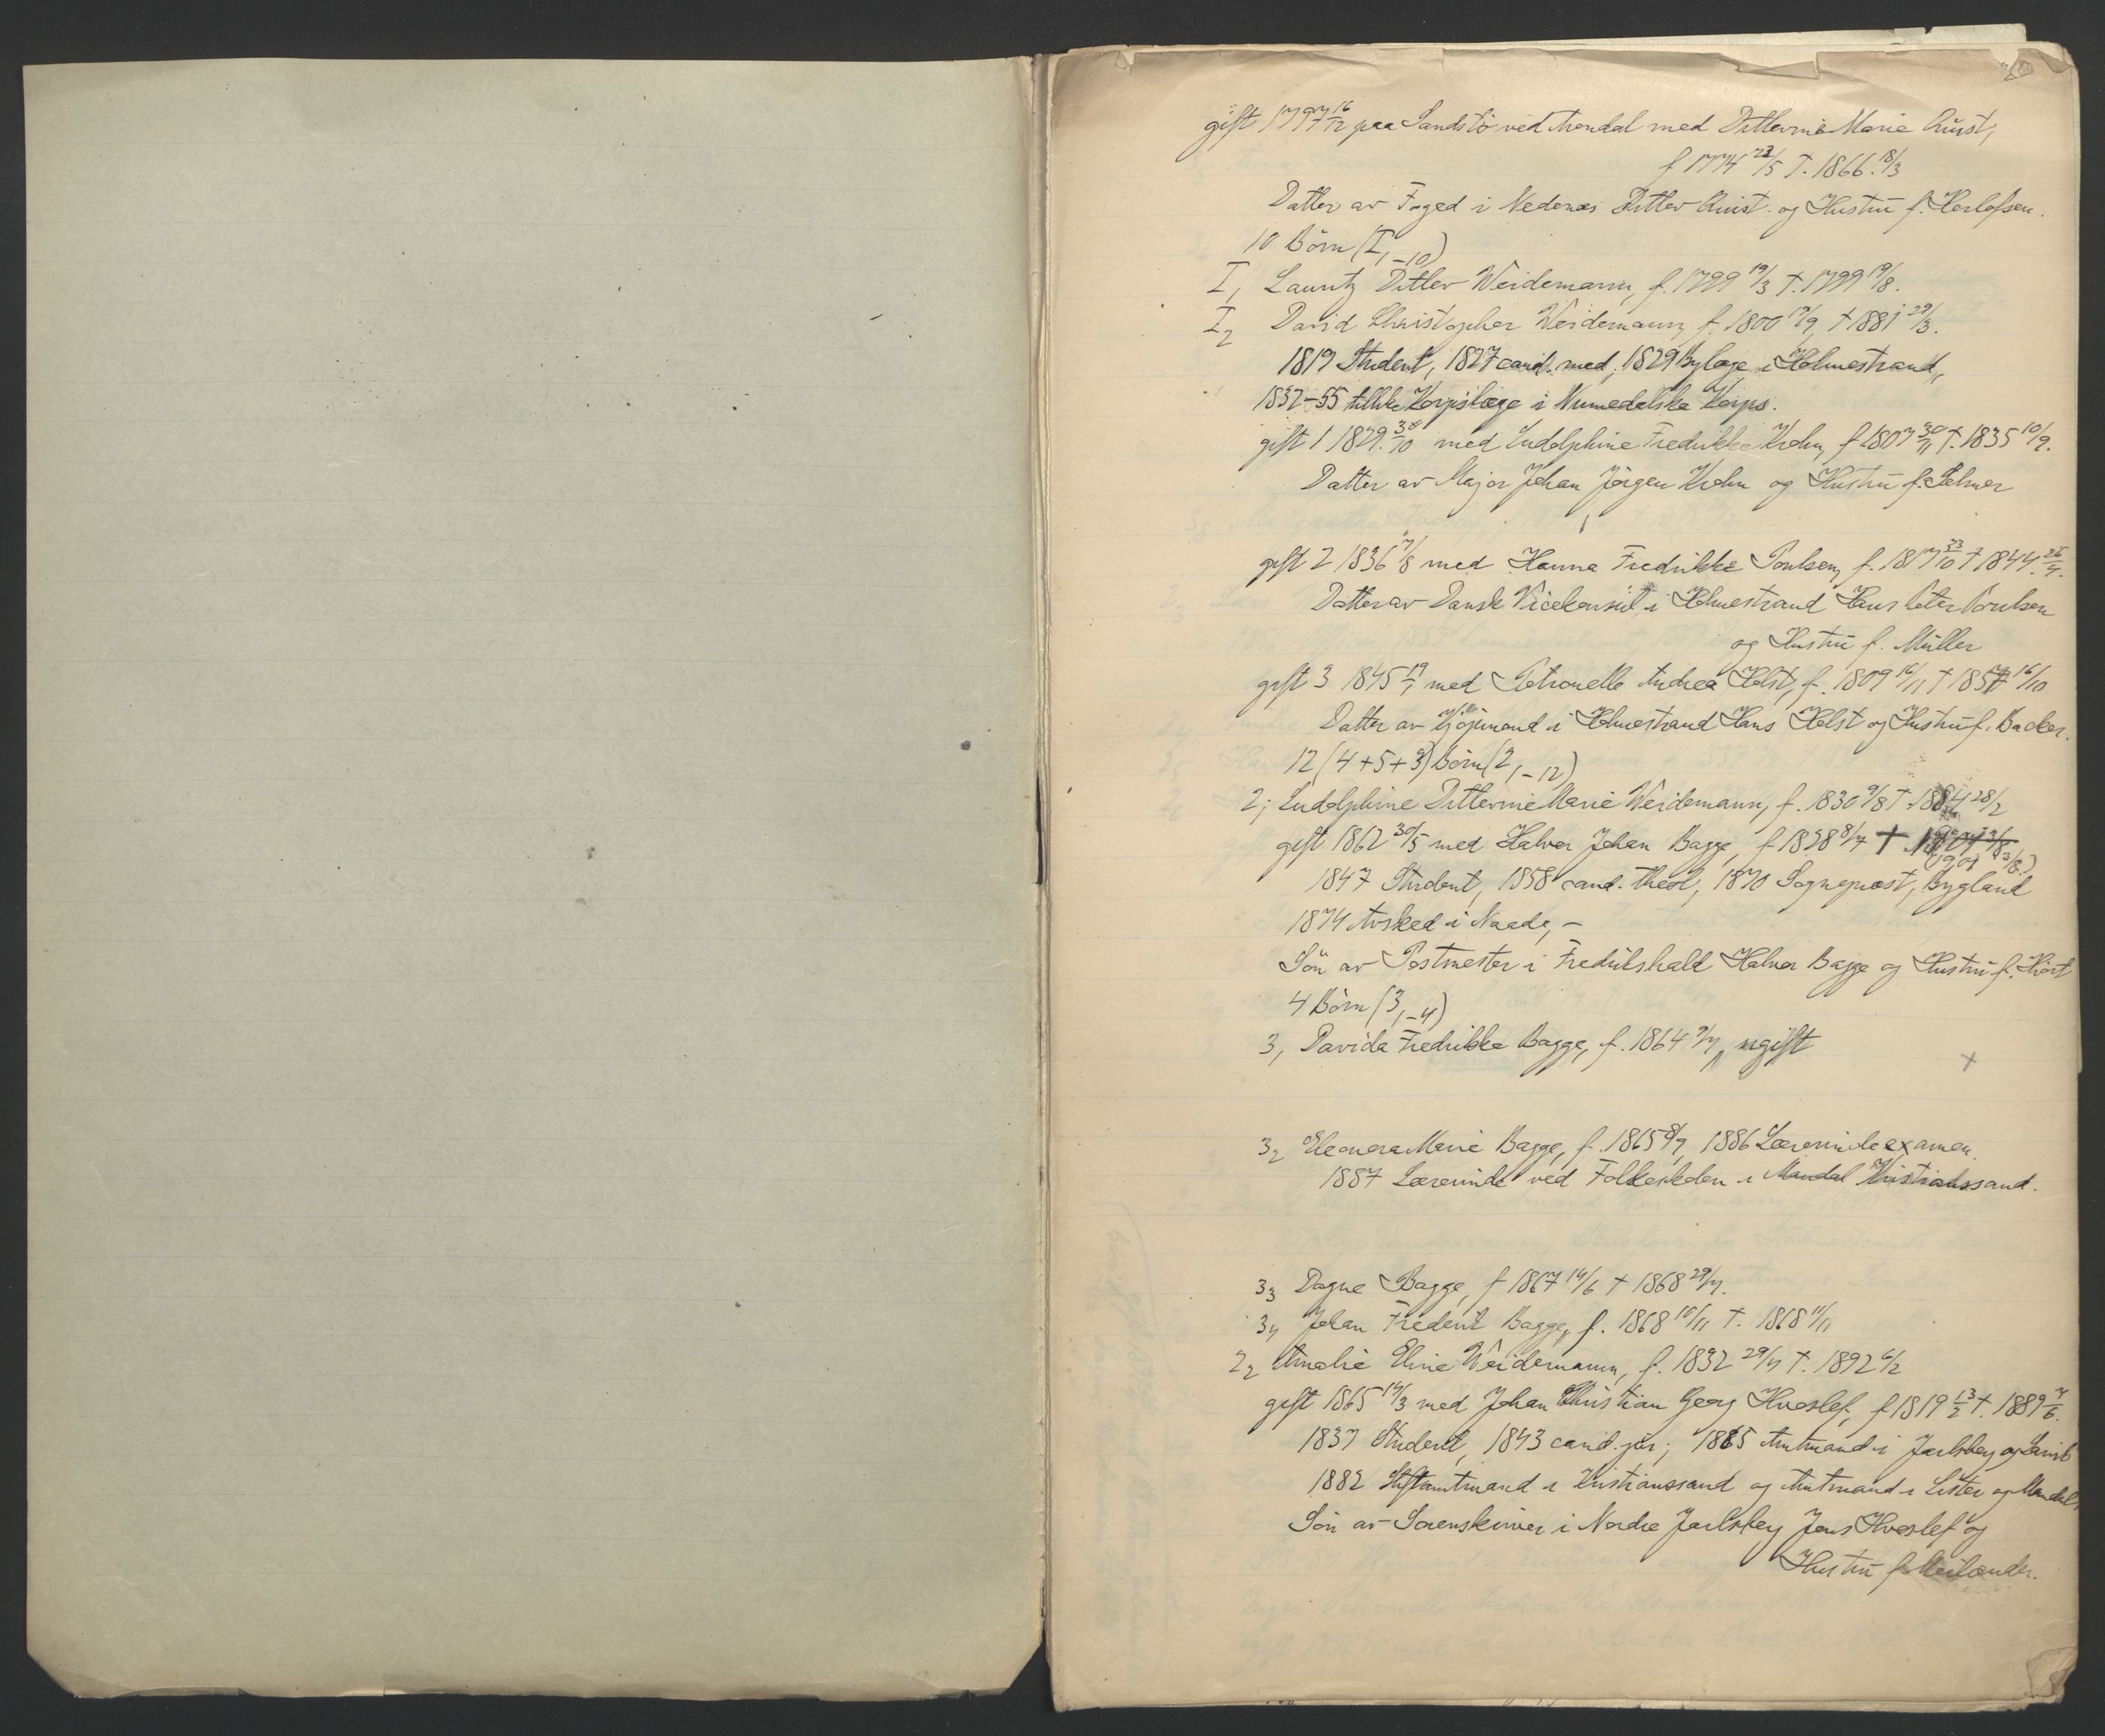 gift 1797 16/12 paa Sandstö ved Arendal med Ditlevine Marie Quist,
f 1774 22/5 †. 1866. 18/3
Datter av Foged i Nedenæs Ditlev Quist. og Hustru f. Herlofsen.
10 Börn (I 1–10)
I 1 Lauritz Ditlev Weidemann, f. 1799 19/3 †. 1799 19/8.
I 2 David Christopher Weidemann, f. 1800 19/9, † 1881 29/3.
1819 Student, 1827 cand. med; 1829 Bylæge i Holmestrand,
1832–55 tillike Korpslæge i Numedalske Korps.
gift 1 1829. 30/10 med Ludolphine Fredrikke Krohn, f 1807 30/11 †. 1835 10/9.
Datter av Major Johan Jörgen Krohn og Hustru f. Selmer
gift 2 1836 7/8 med Hanna Fredrikke Poulsen, f. 1817 23/10 † 1844. 26/4.
Datter av Dansk Vicekonsul i Holmestrand Hans Peter Poulsen
og Hustru f. Müller
gift 3 1845 19/1 med Petronelle Andrea Holst, f. 1809 16/11 † 1857 16/10
Datter av Kjöpmand i Holmestrand Hans Holst og Hustru f. Backer.
12 (4+5+3) Börn (2 1–12)
2 1 Ludolphine Ditlevine Marie Weidemann, f. 1830 9/8 † 1884 28/2
gift 1862 30/5 med Halvor Johan Bagge, f 1828 8/7 †
1847 Student, 1858 cand. theol, 1870 Sogneprest, Bygland
1874 Avsked i Naade, –
Sön av Postmester i Fredrikshald Halvor Bagge og Hustru f. Hiort
4 Börn (3 1–4)
3 1 Davida Fredrikke Bagge, f. 1864 9/7, ugift
3 2 Eleonora Marie Bagge, f. 1865 8/9, 1886 Lærerindeexamen.
1887 Lærerinde ved Folkeskolen i Mandal Kristianssand.
3 3 Dagne Bagge, f 1867 14/6 † 1868 29/7.
3 4 Johan Fredrik Bagge, f. 1868 10/11 †. 1868 11/11
2 2 Amalie Eline Weidemann, f. 1832 29/7 †. 1892 6/2
gift 1865 14/3 med Johan Christian Georg Hvoslef, f 1819 13/2 †. 1889 7/6.
1837 Student, 1843 cand. jur; 1865 Amtmand i Jarlsberg og Laurvik
1882 Stiftamtmand i Kristianssand og Amtmand i Lister og Mandal,
Sön av Sorenskriver i Nordre Jarlsberg Jens Hvoslef og
Hustru f. Meilænder.